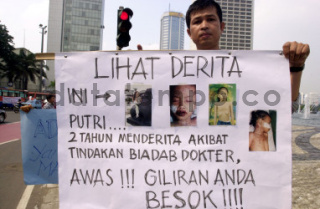 LIHAT DERITA
INI →
PUTRI....
2 TAHUN MENDERITA AKIBAT
TINDAKAN BIADAB DOKTER,
AWAS !!! GILIRAN ANDA
BESOK !!!!